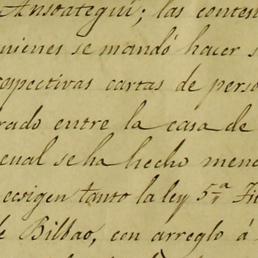 Ansotegui; las conten
uienes se mandó hacer s
respectivas cartas de perso
rado entre la casa de
cual se ha hecho menc
ecsigen tanto la ley 5ª
de Bilbao, con arreglo á